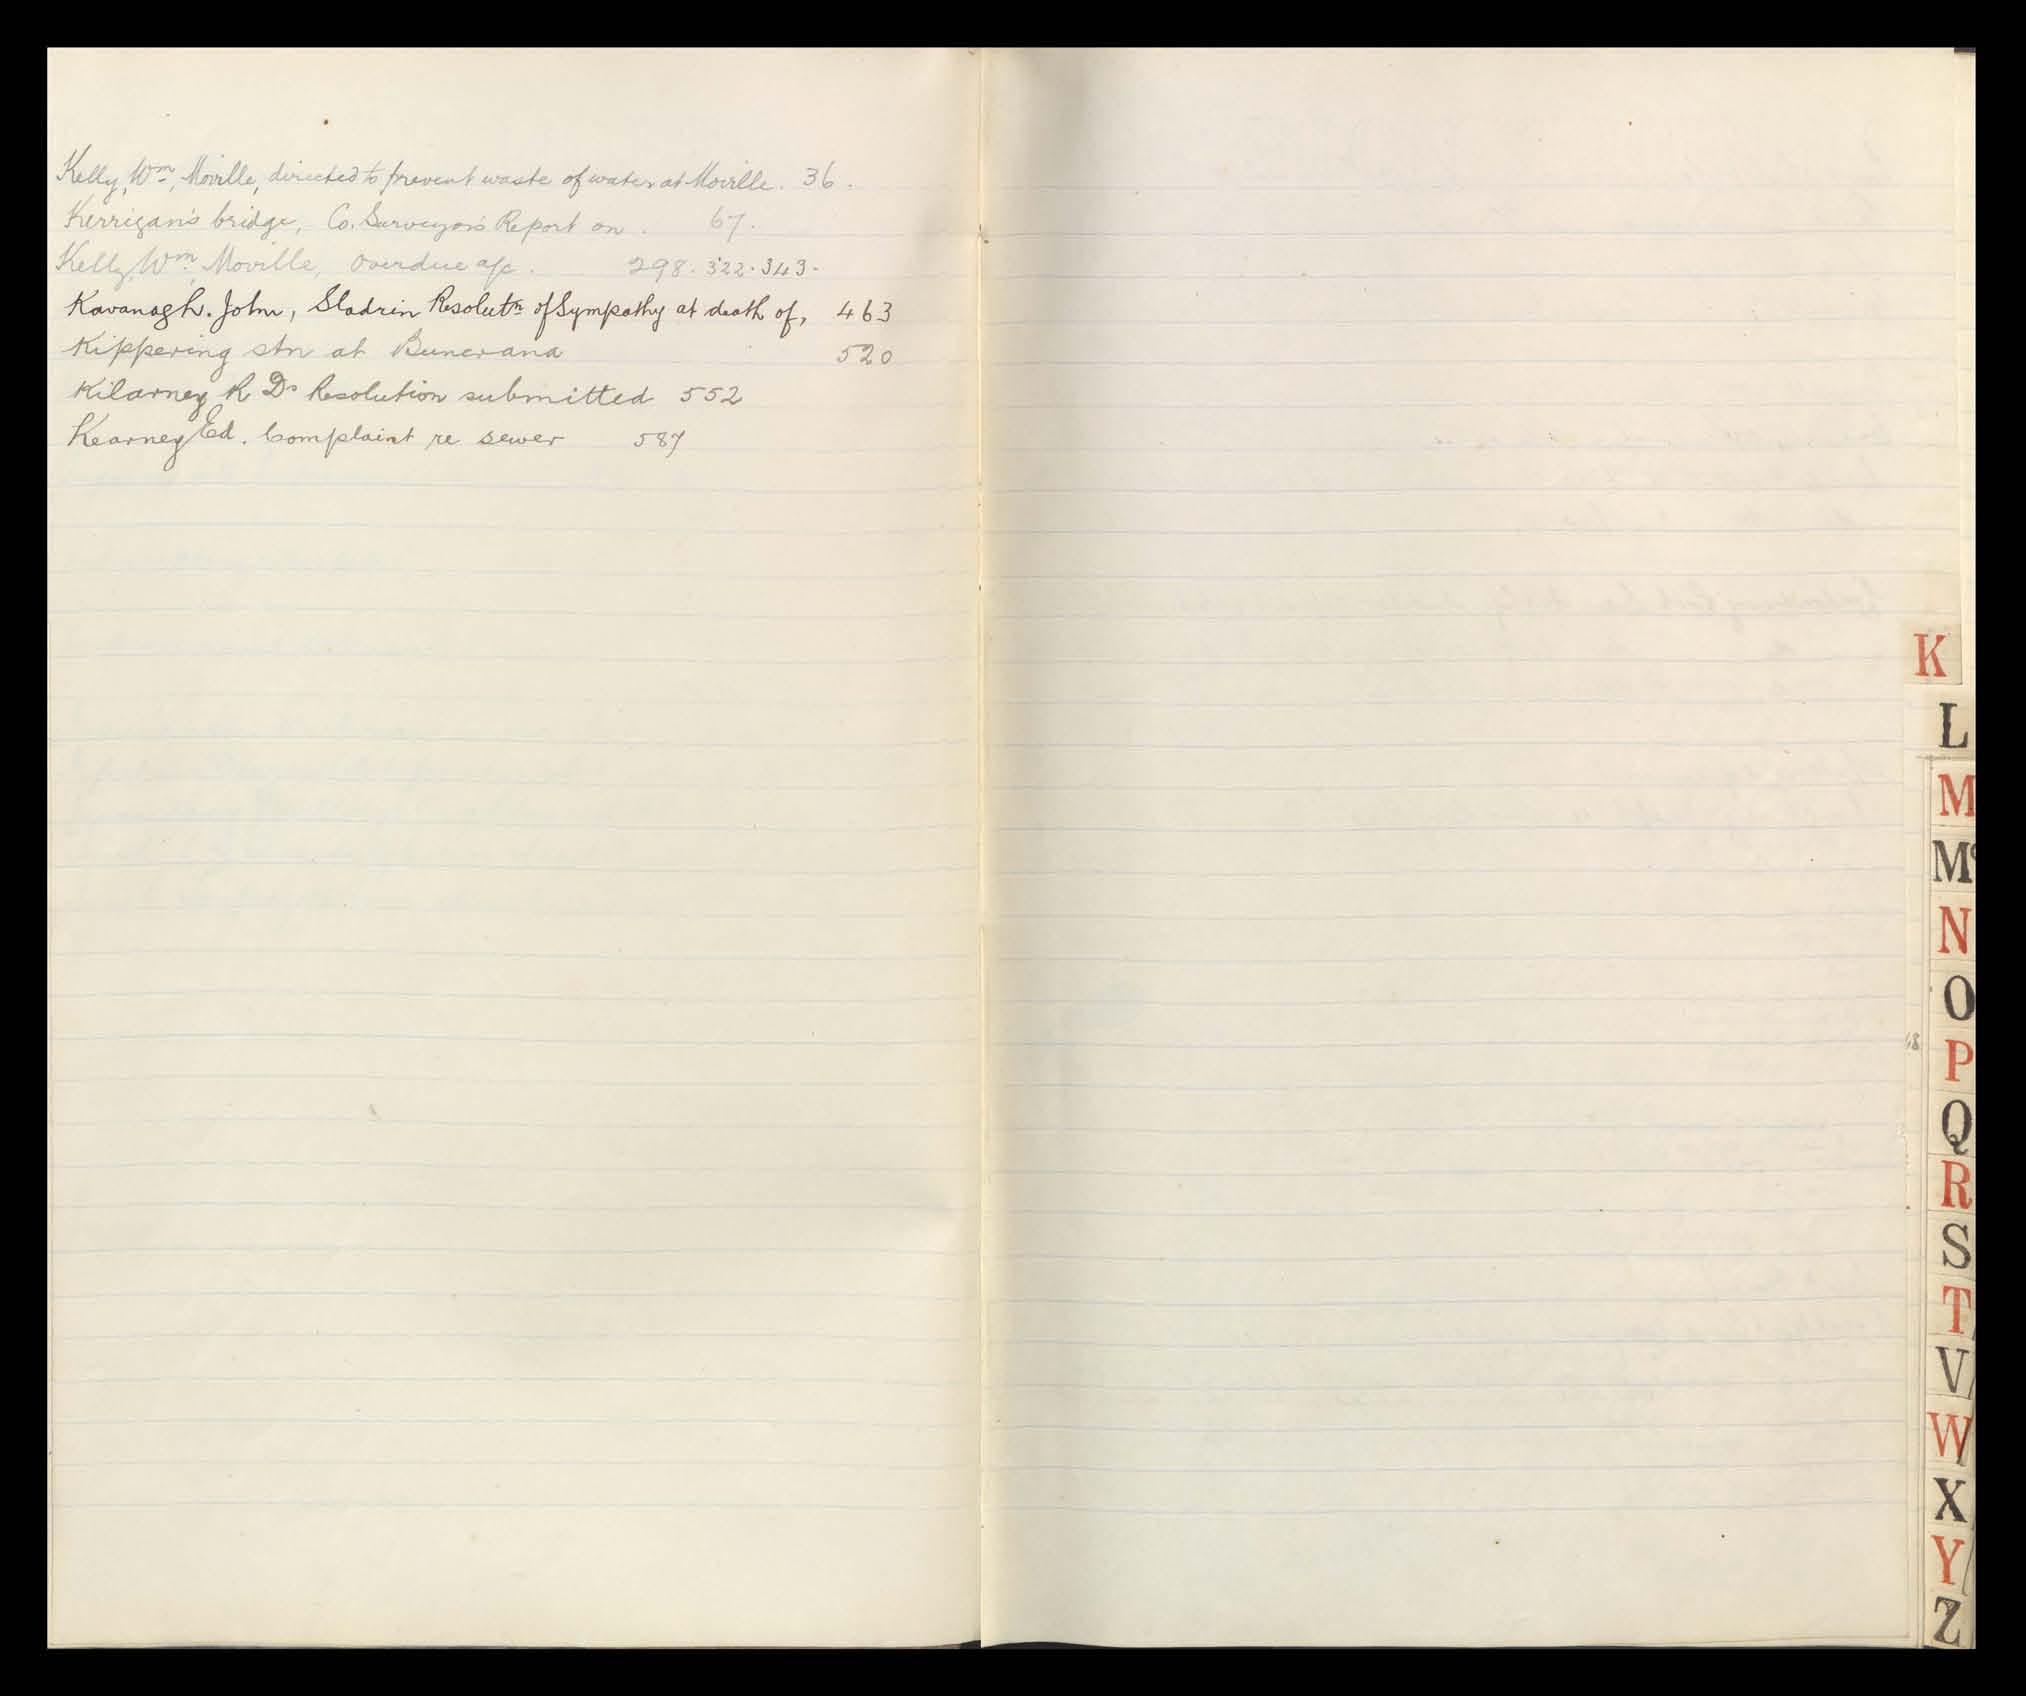 Kelly, Wm, Moville, directed to prevent waste of water at Moville. 36.
Kerrigan's bridge, Co. Surveyor's Report on. 67.
Kelly, Wm, Moville, Overdue a/c. 298. 322. 343.
Kavanagh. John, Sladrin Resolutn of Sympathy at death of, 463
Kippering stn at Buncrana 520
Kilarney R Ds Resolution submitted 552
Kearney Ed. Complaint re sewer 587
K
L
M
Mc
N
O
P
Q
R
S
T
V
W
X
Y
Z